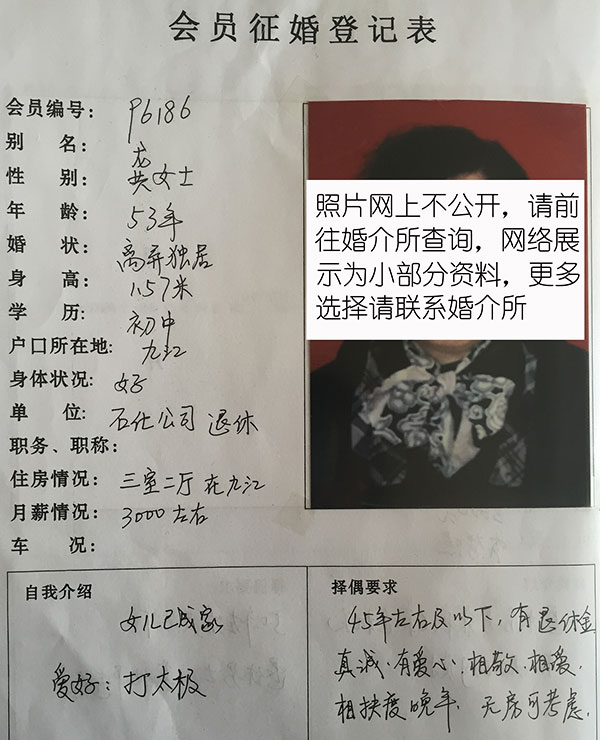 会员征婚登记表
会员编号: P6186
别 名: 龚女士
性 别:
年 龄: 53年
婚 状: 离异独居
身 高: 1.57米
学 历: 初中
户口所在地: 九江
身体状况: 好
单 位: 石化公司 退休
职务、职称:
住房情况: 三室二厅 在九江
月薪情况: 3000左右
车 况:
照片网上不公开，请前
往婚介所查询，网络展
示为小部分资料，更多
选择请联系婚介所
自我介绍
女儿已成家
爱好: 打太极
择偶要求
45年左右及以下，有退休金
真诚·有爱心·相敬·相爱，
相扶度晚年，无房可考虑，